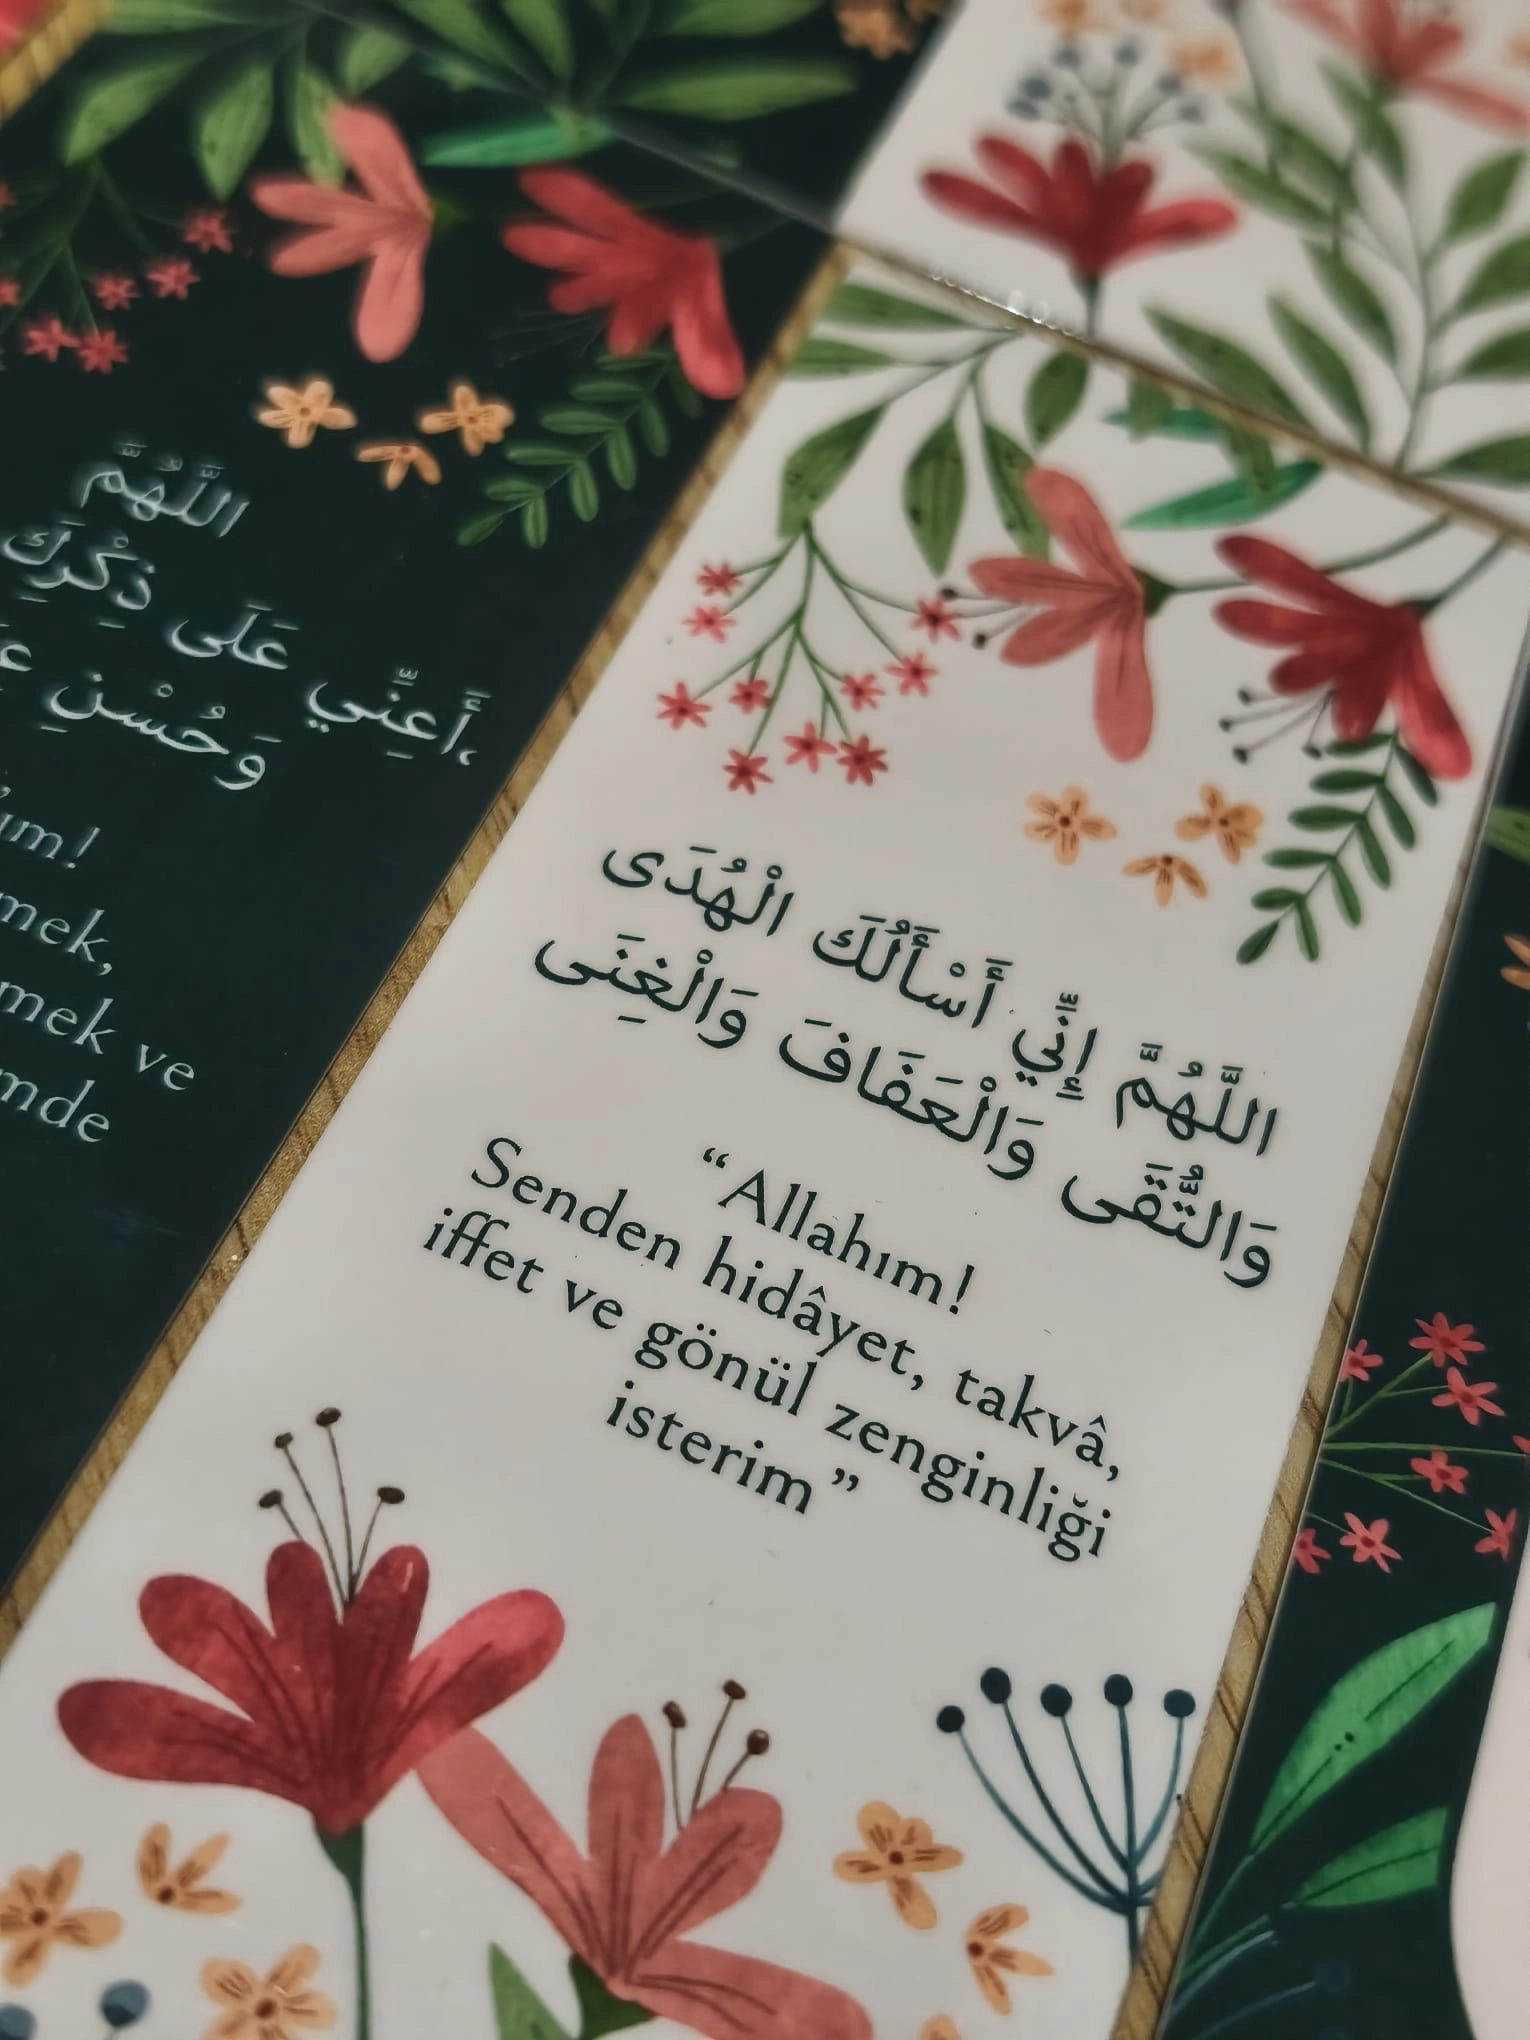 اللَّهُمَّ
أَعِنِّي عَلَى ذِكْرِكَ،
وَحُسْنِ
mek,
mek ve
mde
اللَّهُمَّ إِنِّي أَسْأَلُكَ الْهُدَى
وَالتُّقَى وَالْعَفَافَ وَالْغِنَى
“Allahım!
Senden hidâyet, takvâ,
iffet ve gönül zenginliği
isterim”